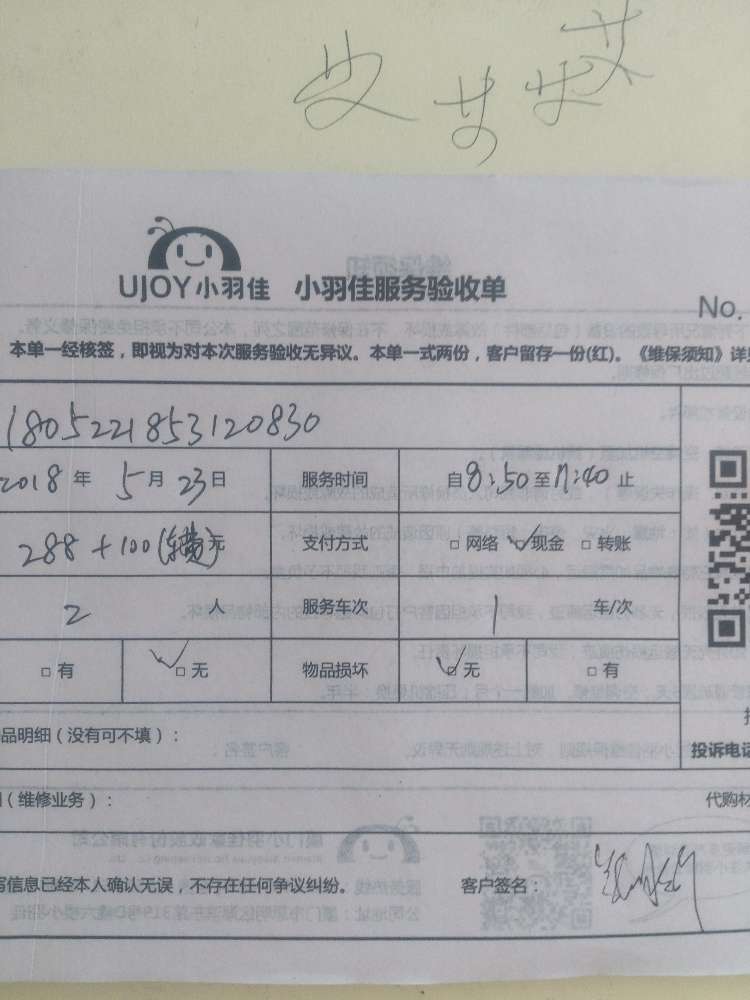 艾艾艾艾
UJOY小羽佳 小羽佳服务验收单
No.
本单一经核签，即视为对本次服务验收无异议。本单一式两份，客户留存一份(红)。《维保须知》详见
1805221853120830
2018年 5月 23日 服务时间 自8:50至11:40止
288+100(车费)元 支付方式 □网络 ☑现金 □转账
2 人 服务车次 1 车/次
□有 ☑无 物品损坏 ☑无 □有
品明细（没有可不填）：
投诉电话
（维修业务）： 代购材
写信息已经本人确认无误，不存在任何争议纠纷。 客户签名：